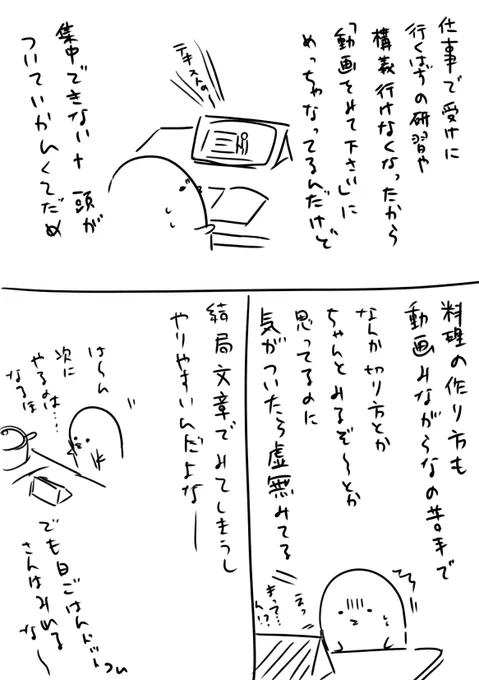 仕事で受けに
行くはずの研修や
講義行けなくなったから
「動画をみて下さい」に
めっちゃなってるんだけど
テキストの
集中できない+頭が
ついていかんくてだめ
料理の作り方も
動画みながらなの苦手で
なんか切り方とか
ちゃんとみるぞ〜とか
思ってるのに
気がついたら虚無みてる
えっ
きって…
ん!?
結局文章でみてしまうし
やりやすいんだよなー
は〜ん
次に
やるのは…
なるほ
でも日ごはんドットコム
さんはみれる
な〜